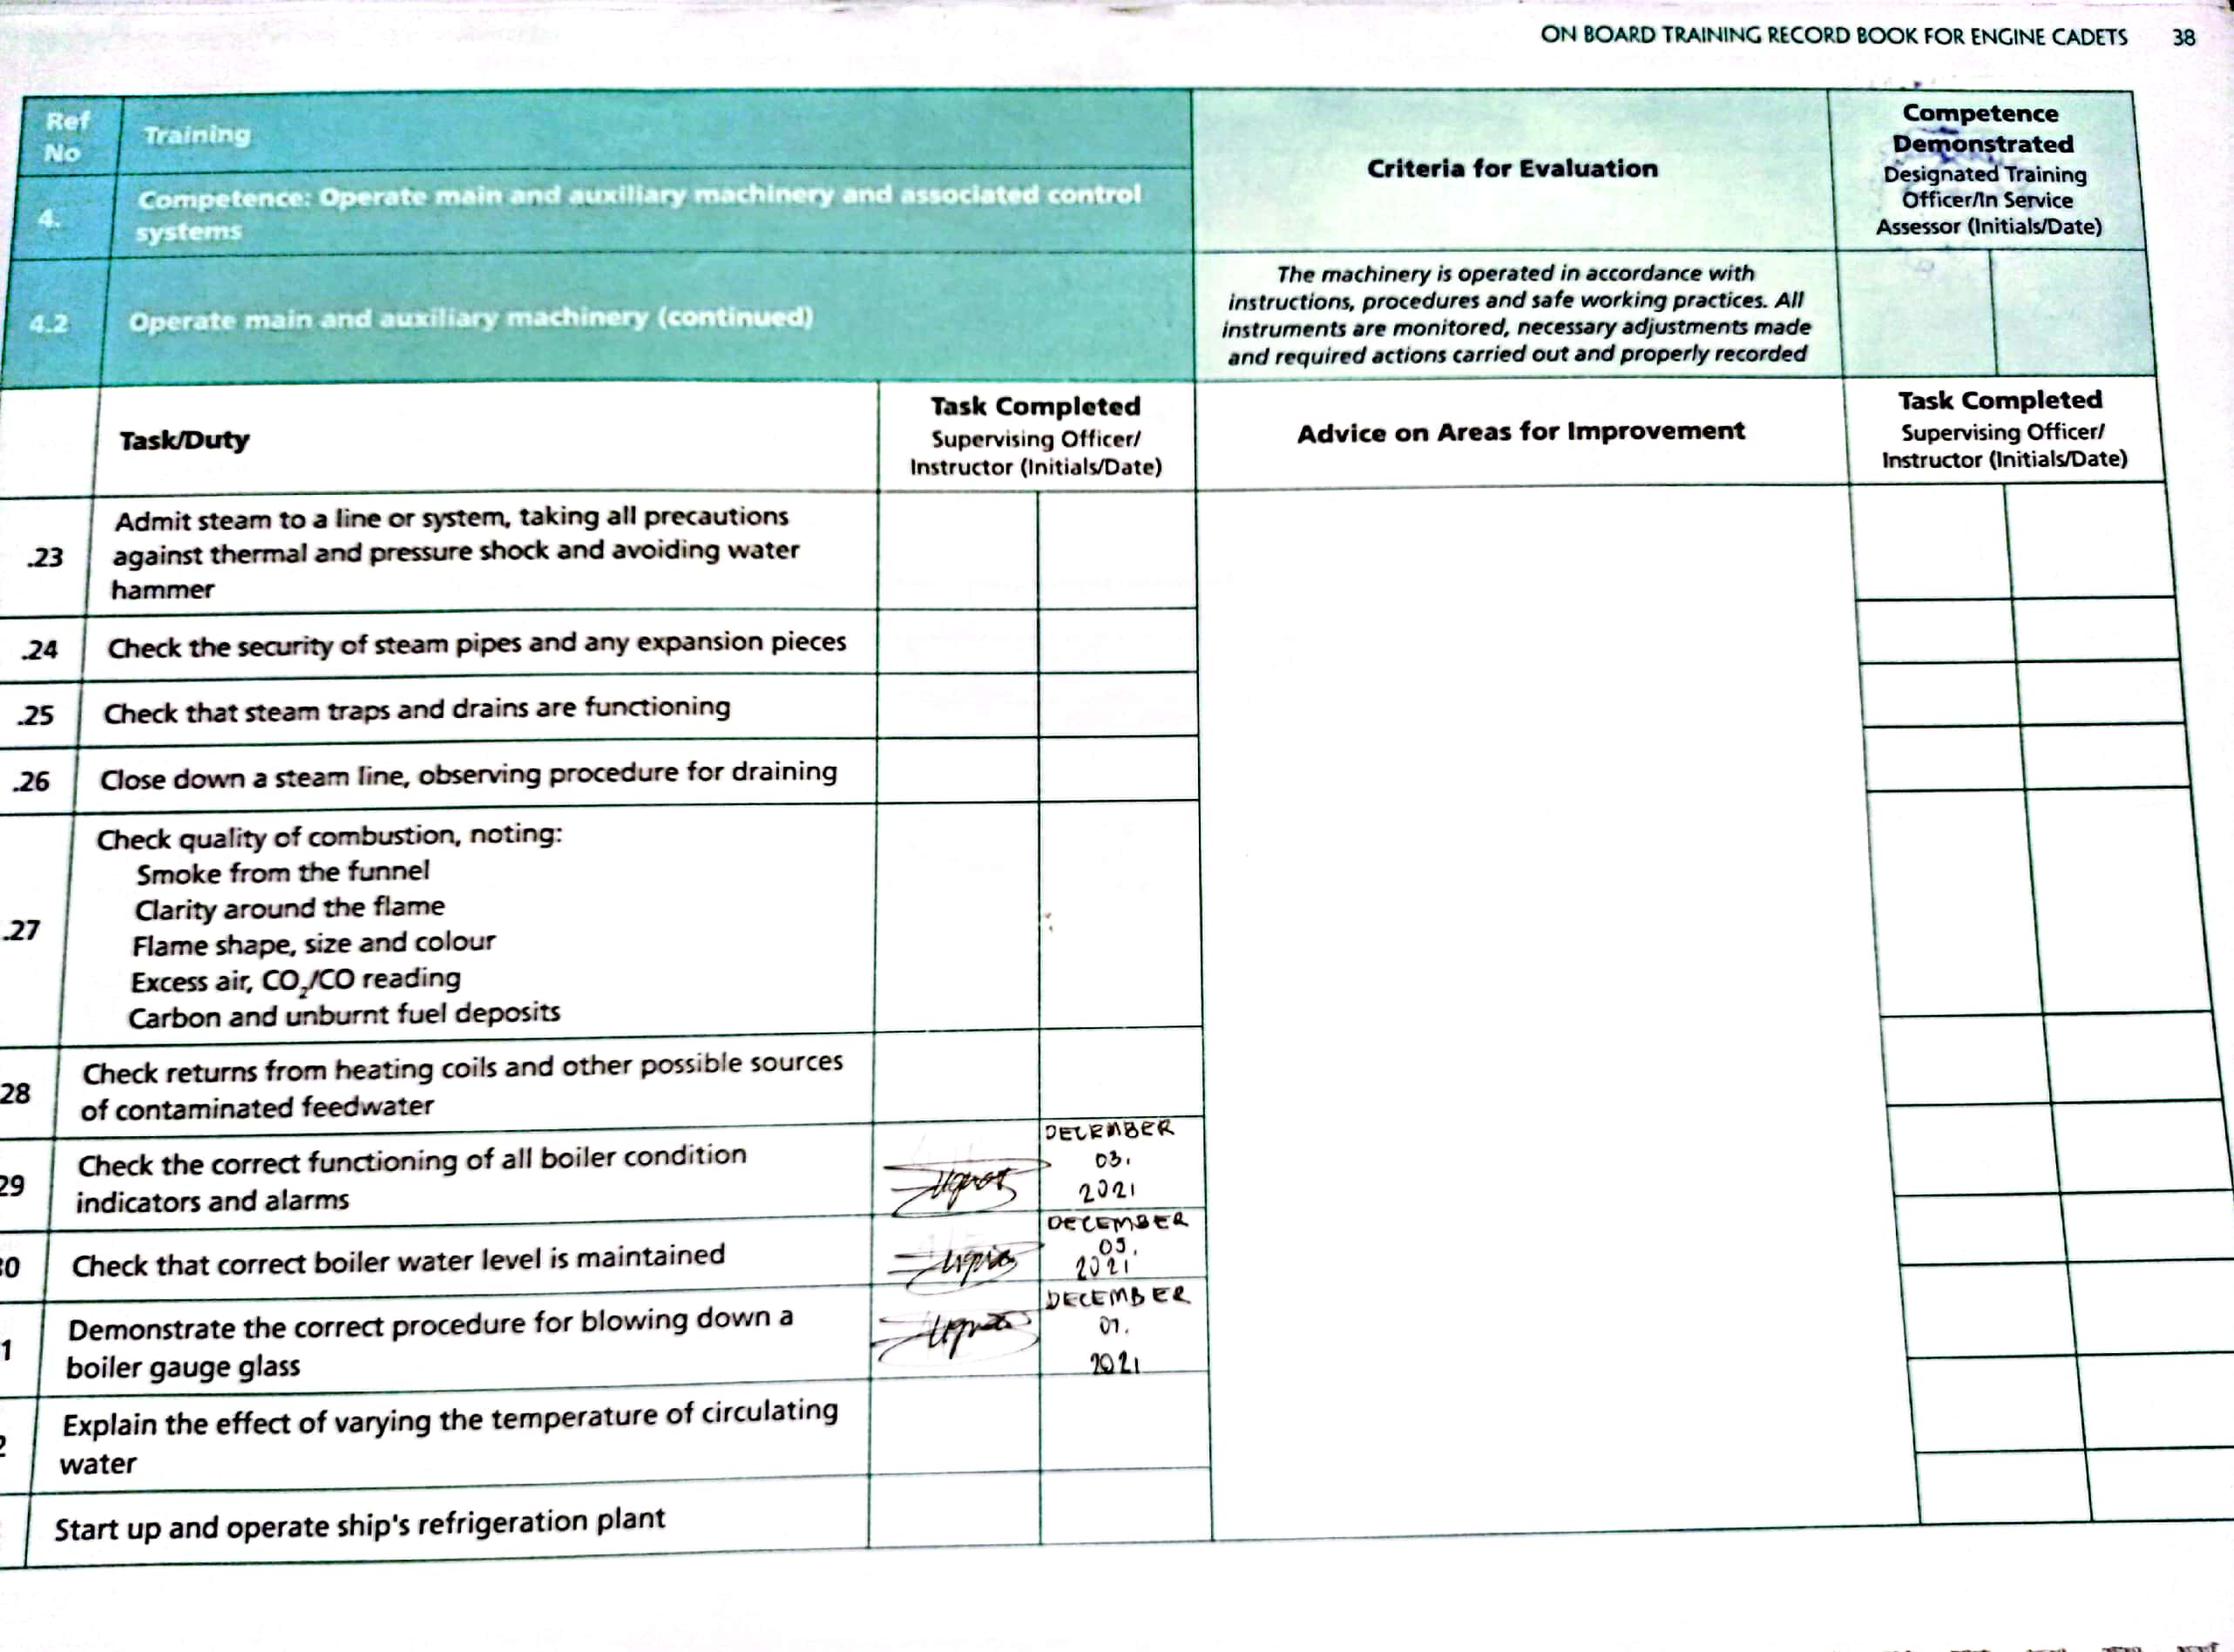 ON BOARD TRAINING RECORD BOOK FOR ENGINE CADETS 38
Ref
No
Training
4.
Competence: Operate main and auxiliary machinery and associated control
systems
4.2
Operate main and auxiliary machinery (continued)
Criteria for Evaluation
The machinery is operated in accordance with
instructions, procedures and safe working practices. All
instruments are monitored, necessary adjustments made
and required actions carried out and properly recorded
Competence
Demonstrated
Designated Training
Officer/In Service
Assessor (Initials/Date)
Task/Duty
Task Completed
Supervising Officer/
Instructor (Initials/Date)
Advice on Areas for Improvement
Task Completed
Supervising Officer/
Instructor (Initials/Date)
.23
Admit steam to a line or system, taking all precautions
against thermal and pressure shock and avoiding water
hammer
.24
Check the security of steam pipes and any expansion pieces
.25
Check that steam traps and drains are functioning
.26
Close down a steam line, observing procedure for draining
.27
Check quality of combustion, noting:
Smoke from the funnel
Clarity around the flame
Flame shape, size and colour
Excess air, CO₂/CO reading
Carbon and unburnt fuel deposits
28
Check returns from heating coils and other possible sources
of contaminated feedwater
29
Check the correct functioning of all boiler condition
indicators and alarms
DECEMBER
03.
2021
30
Check that correct boiler water level is maintained
DECEMBER
2021
1
Demonstrate the correct procedure for blowing down a
boiler gauge glass
DECEMBER
2021
2
Explain the effect of varying the temperature of circulating
water
Start up and operate ship's refrigeration plant